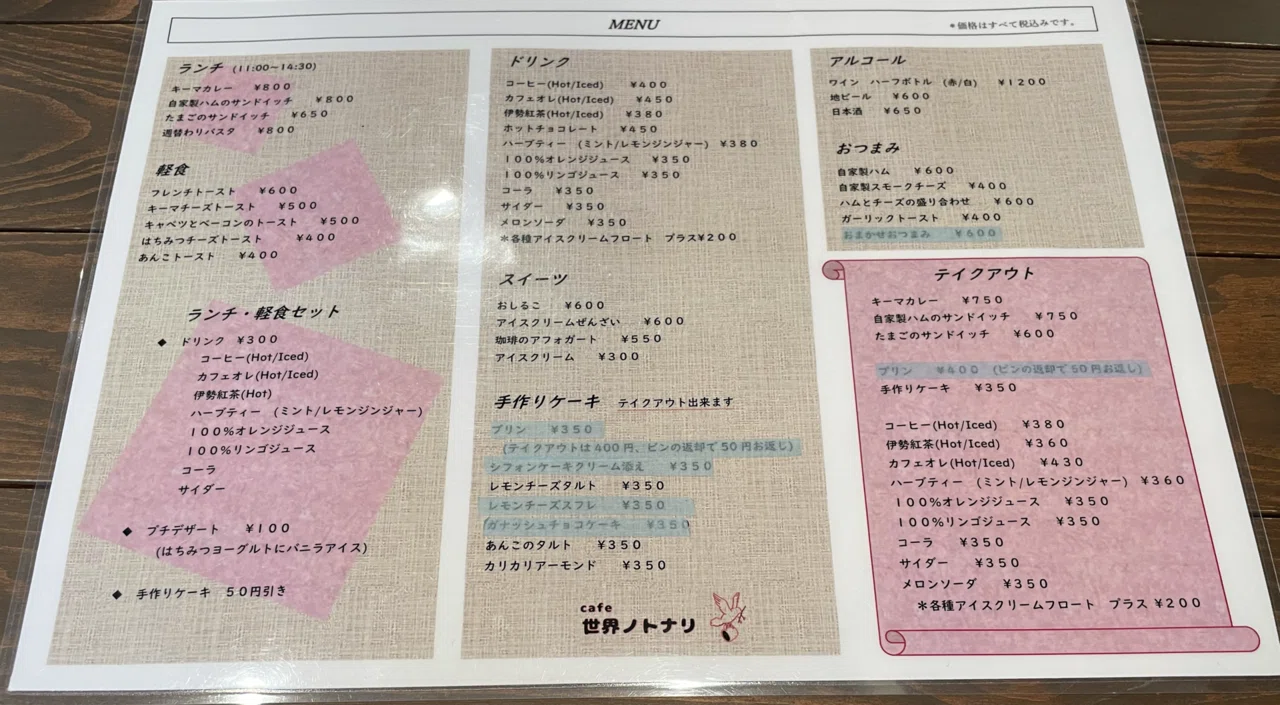 MENU
*価格はすべて税込みです。
ランチ (11:00~14:30)
キーマカレー ¥800
自家製ハムのサンドイッチ ¥800
たまごのサンドイッチ ¥650
週替わりパスタ ¥800
軽食
フレンチトースト ¥600
キーマチーズトースト ¥500
キャベツとベーコンのトースト ¥500
はちみつチーズトースト ¥400
あんこトースト ¥400
ランチ・軽食セット
◆ ドリンク ¥300
コーヒー(Hot/Iced)
カフェオレ(Hot/Iced)
伊勢紅茶(Hot)
ハーブティー (ミント/レモンジンジャー)
100%オレンジジュース
100%リンゴジュース
コーラ
サイダー
◆ プチデザート ¥100
(はちみつヨーグルトにバニラアイス)
◆ 手作りケーキ 50円引き
ドリンク
コーヒー(Hot/Iced) ¥400
カフェオレ(Hot/Iced) ¥450
伊勢紅茶(Hot/Iced) ¥380
ホットチョコレート ¥450
ハーブティー (ミント/レモンジンジャー) ¥380
100%オレンジジュース ¥350
100%リンゴジュース ¥350
コーラ ¥350
サイダー ¥350
メロンソーダ ¥350
*各種アイスクリームフロート プラス¥200
スイーツ
おしるこ ¥600
アイスクリームぜんざい ¥600
珈琲のアフォガート ¥550
アイスクリーム ¥300
手作りケーキ テイクアウト出来ます
プリン ¥350
(テイクアウトは400円、ビンの返却で50円お返し)
シフォンケーキクリーム添え ¥350
レモンチーズタルト ¥350
レモンチーズスフレ ¥350
ガナッシュチョコケーキ ¥350
あんこのタルト ¥350
カリカリアーモンド ¥350
cafe
世界ノトナリ
アルコール
ワイン ハーフボトル (赤/白) ¥1200
地ビール ¥600
日本酒 ¥650
おつまみ
自家製ハム ¥600
自家製スモークチーズ ¥400
ハムとチーズの盛り合わせ ¥600
ガーリックトースト ¥400
おまかせおつまみ ¥600
テイクアウト
キーマカレー ¥750
自家製ハムのサンドイッチ ¥750
たまごのサンドイッチ ¥600
プリン ¥400 (ビンの返却で50円お返し)
手作りケーキ ¥350
コーヒー(Hot/Iced) ¥380
伊勢紅茶(Hot/Iced) ¥360
カフェオレ(Hot/Iced) ¥430
ハーブティー (ミント/レモンジンジャー) ¥360
100%オレンジジュース ¥350
100%リンゴジュース ¥350
コーラ ¥350
サイダー ¥350
メロンソーダ ¥350
*各種アイスクリームフロート プラス ¥200